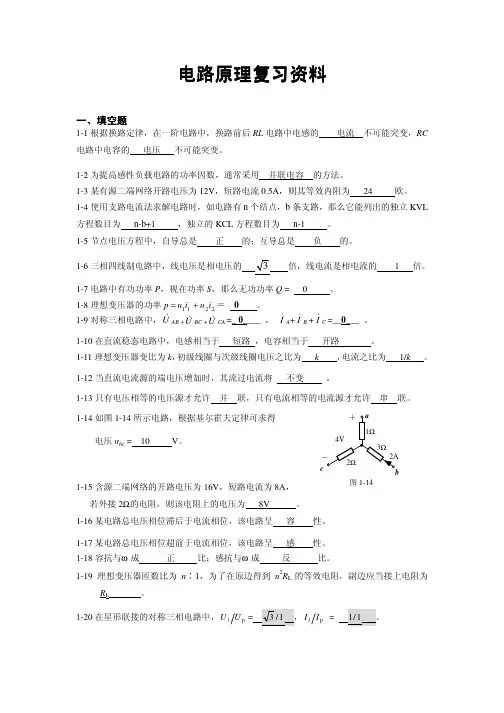 电路原理复习资料
一、填空题
1-1 根据换路定律，在一阶电路中，换路前后 RL 电路中电感的 电流 不可能突变，RC
电路中电容的 电压 不可能突变。
1-2 为提高感性负载电路的功率因数，通常采用 并联电容 的方法。
1-3 某有源二端网络开路电压为 12V，短路电流 0.5A，则其等效内阻为 24 欧。
1-4 使用支路电流法求解电路时，如电路有 n 个结点，b 条支路，那么它能列出的独立 KVL
方程数目为 n-b+1 ，独立的 KCL 方程数目为 n-1 。
1-5 节点电压方程中，自导总是 正 的；互导总是 负 的。
1-6 三相四线制电路中，线电压是相电压的 √3 倍，线电流是相电流的 1 倍。
1-7 电路中有功功率 P，视在功率 S，那么无功功率 Q = 0 。
1-8 理想变压器的功率 p = u₁i₁ + u₂i₂ = 0 。
1-9 对称三相电路中，U̇ AB + U̇ BC + U̇ CA = 0 ，İ A + İ B + İ C = 0 。
1-10 在直流稳态电路中，电感相当于 短路 ，电容相当于 开路 。
1-11 理想变压器变比为 k，初级线圈与次级线圈电压之比为 k ，电流之比为 1/k 。
1-12 当直流电流源的端电压增加时，其流过电流将 不变 。
1-13 只有电压相等的电压源才允许 并 联，只有电流相等的电流源才允许 串 联。
1-14 如图 1-14 所示电路，根据基尔霍夫定律可求得
电压 ubc = 10 V。
+ a
1Ω
4V
3Ω
2A
− 2Ω
c b
图 1-14
1-15 含源二端网络的开路电压为 16V，短路电流为 8A，
若外接 2Ω的电阻，则该电阻上的电压为 8V 。
1-16 某电路总电压相位滞后于电流相位，该电路呈 容 性。
1-17 某电路总电压相位超前于电流相位，该电路呈 感 性。
1-18 容抗与ω成 正 比；感抗与ω成 反 比。
1-19 理想变压器匝数比为 n∶1，为了在原边得到 n²RL 的等效电阻，副边应当接上电阻为
RL 。
1-20 在星形联接的对称三相电路中，Ul/Up = √3/1 ，Il/Ip = 1/1 。